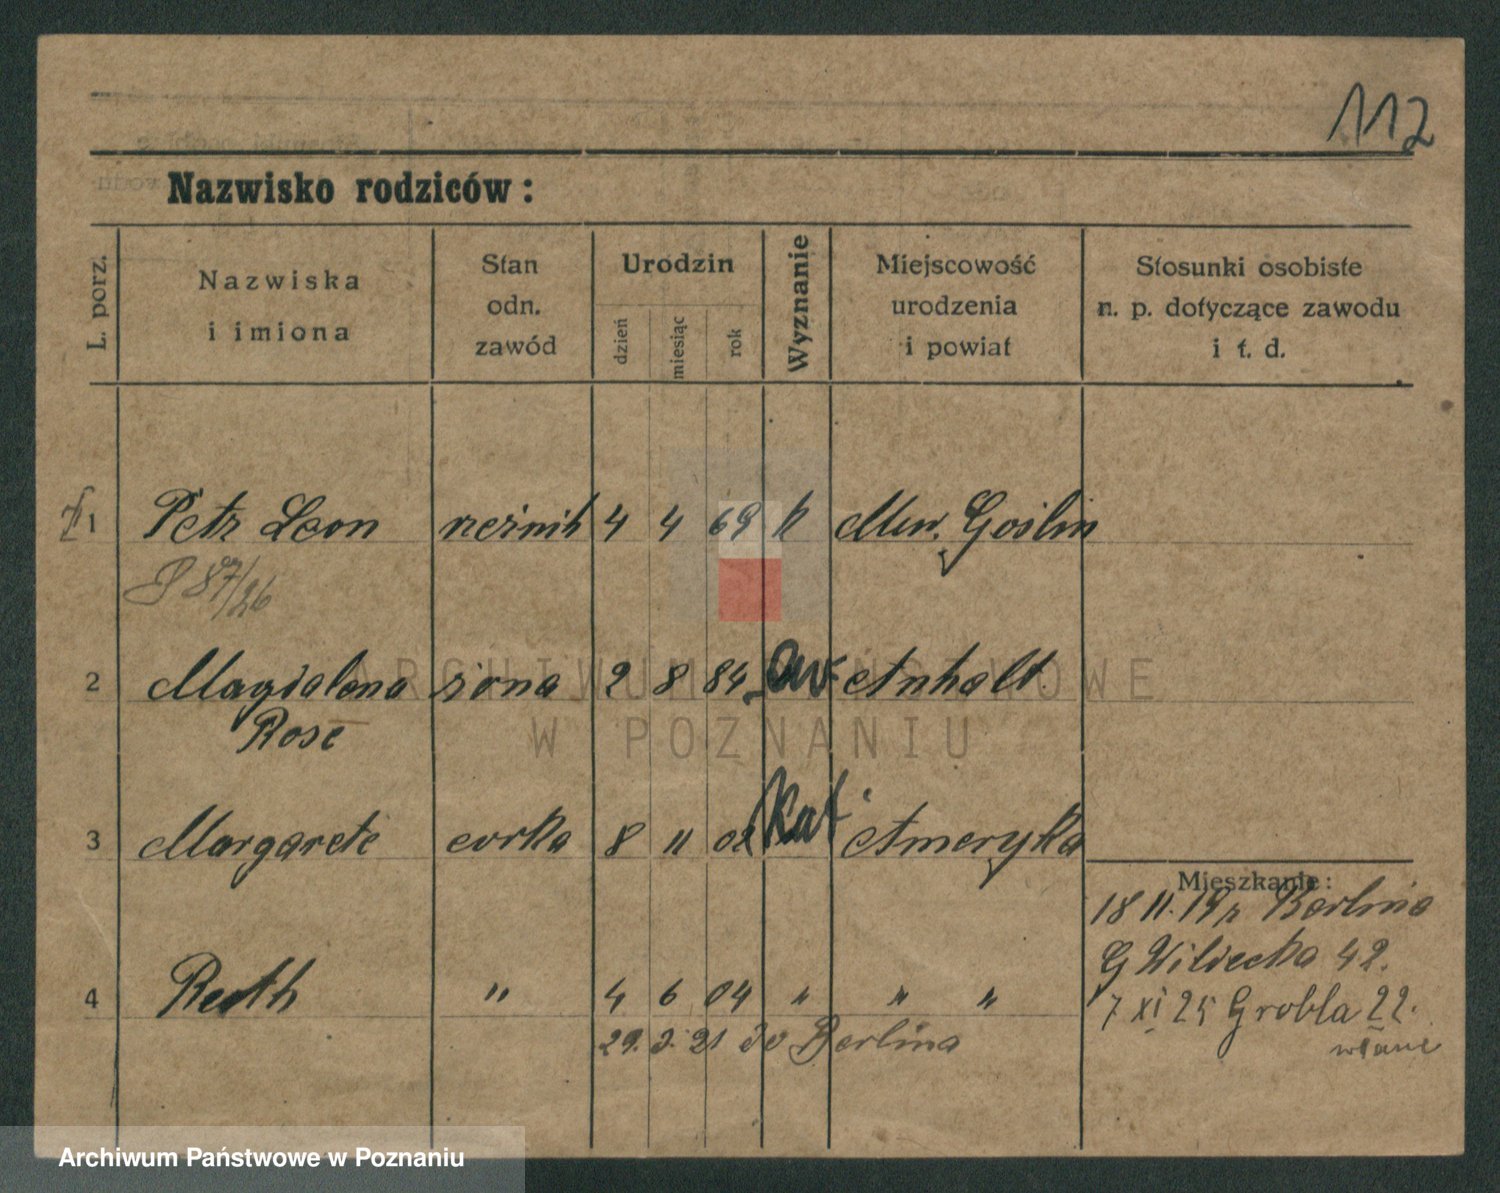 112
Nazwisko rodziców:
L. porz.
Nazwiska
i imiona
Stan
odn.
zawód
Urodzin
dzień
miesiąc
rok
Wyznanie
Miejscowość
urodzenia
i powiat
Stosunki osobiste
n. p. dotyczące zawodu
i t. d.
1 Petz Leon rzeźnik 4 4 69 k Mur. Goślin
87/26
2 Magdalena żona 2 8 84 ew. Anhalt
Rose
3 Margarete corka 8 11 02 kat Ameryka
Mieszkanie:
18 11. 19 r Berlina
G Wiliecka 42.
4 Reth " 4 6 04 " " "
7 XI 25 Grobla 22.
29. 3. 21 do Berlina
ARCHIWUM PAŃSTWOWE
W POZNANIU
Archiwum Państwowe w Poznaniu